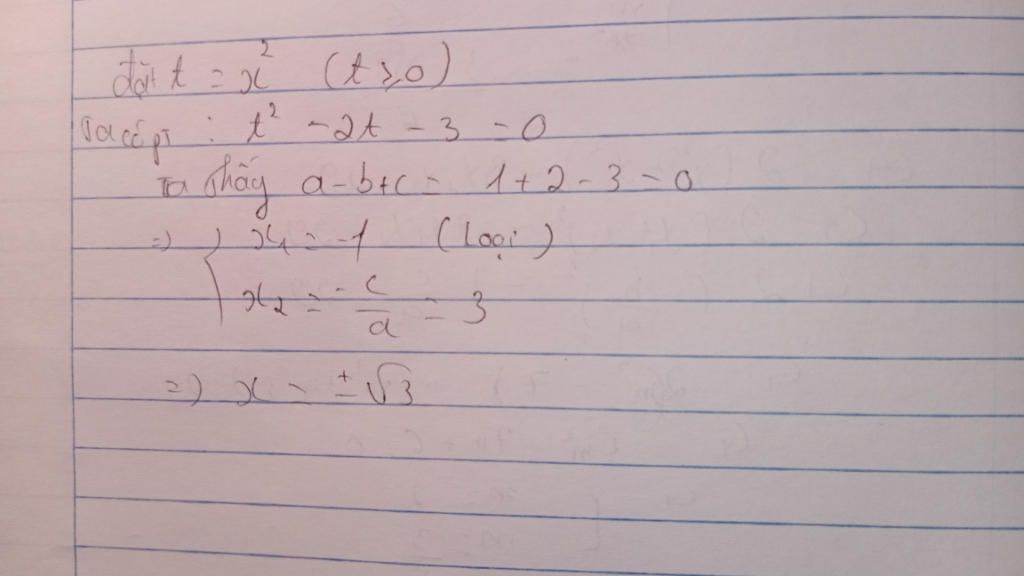 đặt t = x² (t ≥ 0)
Ta có pt : t² - 2t - 3 = 0
Ta thấy a - b + c = 1 + 2 - 3 = 0
=> { x₁ = -1 (Loại)
x₂ = -c/a = 3
=> x = ±√3